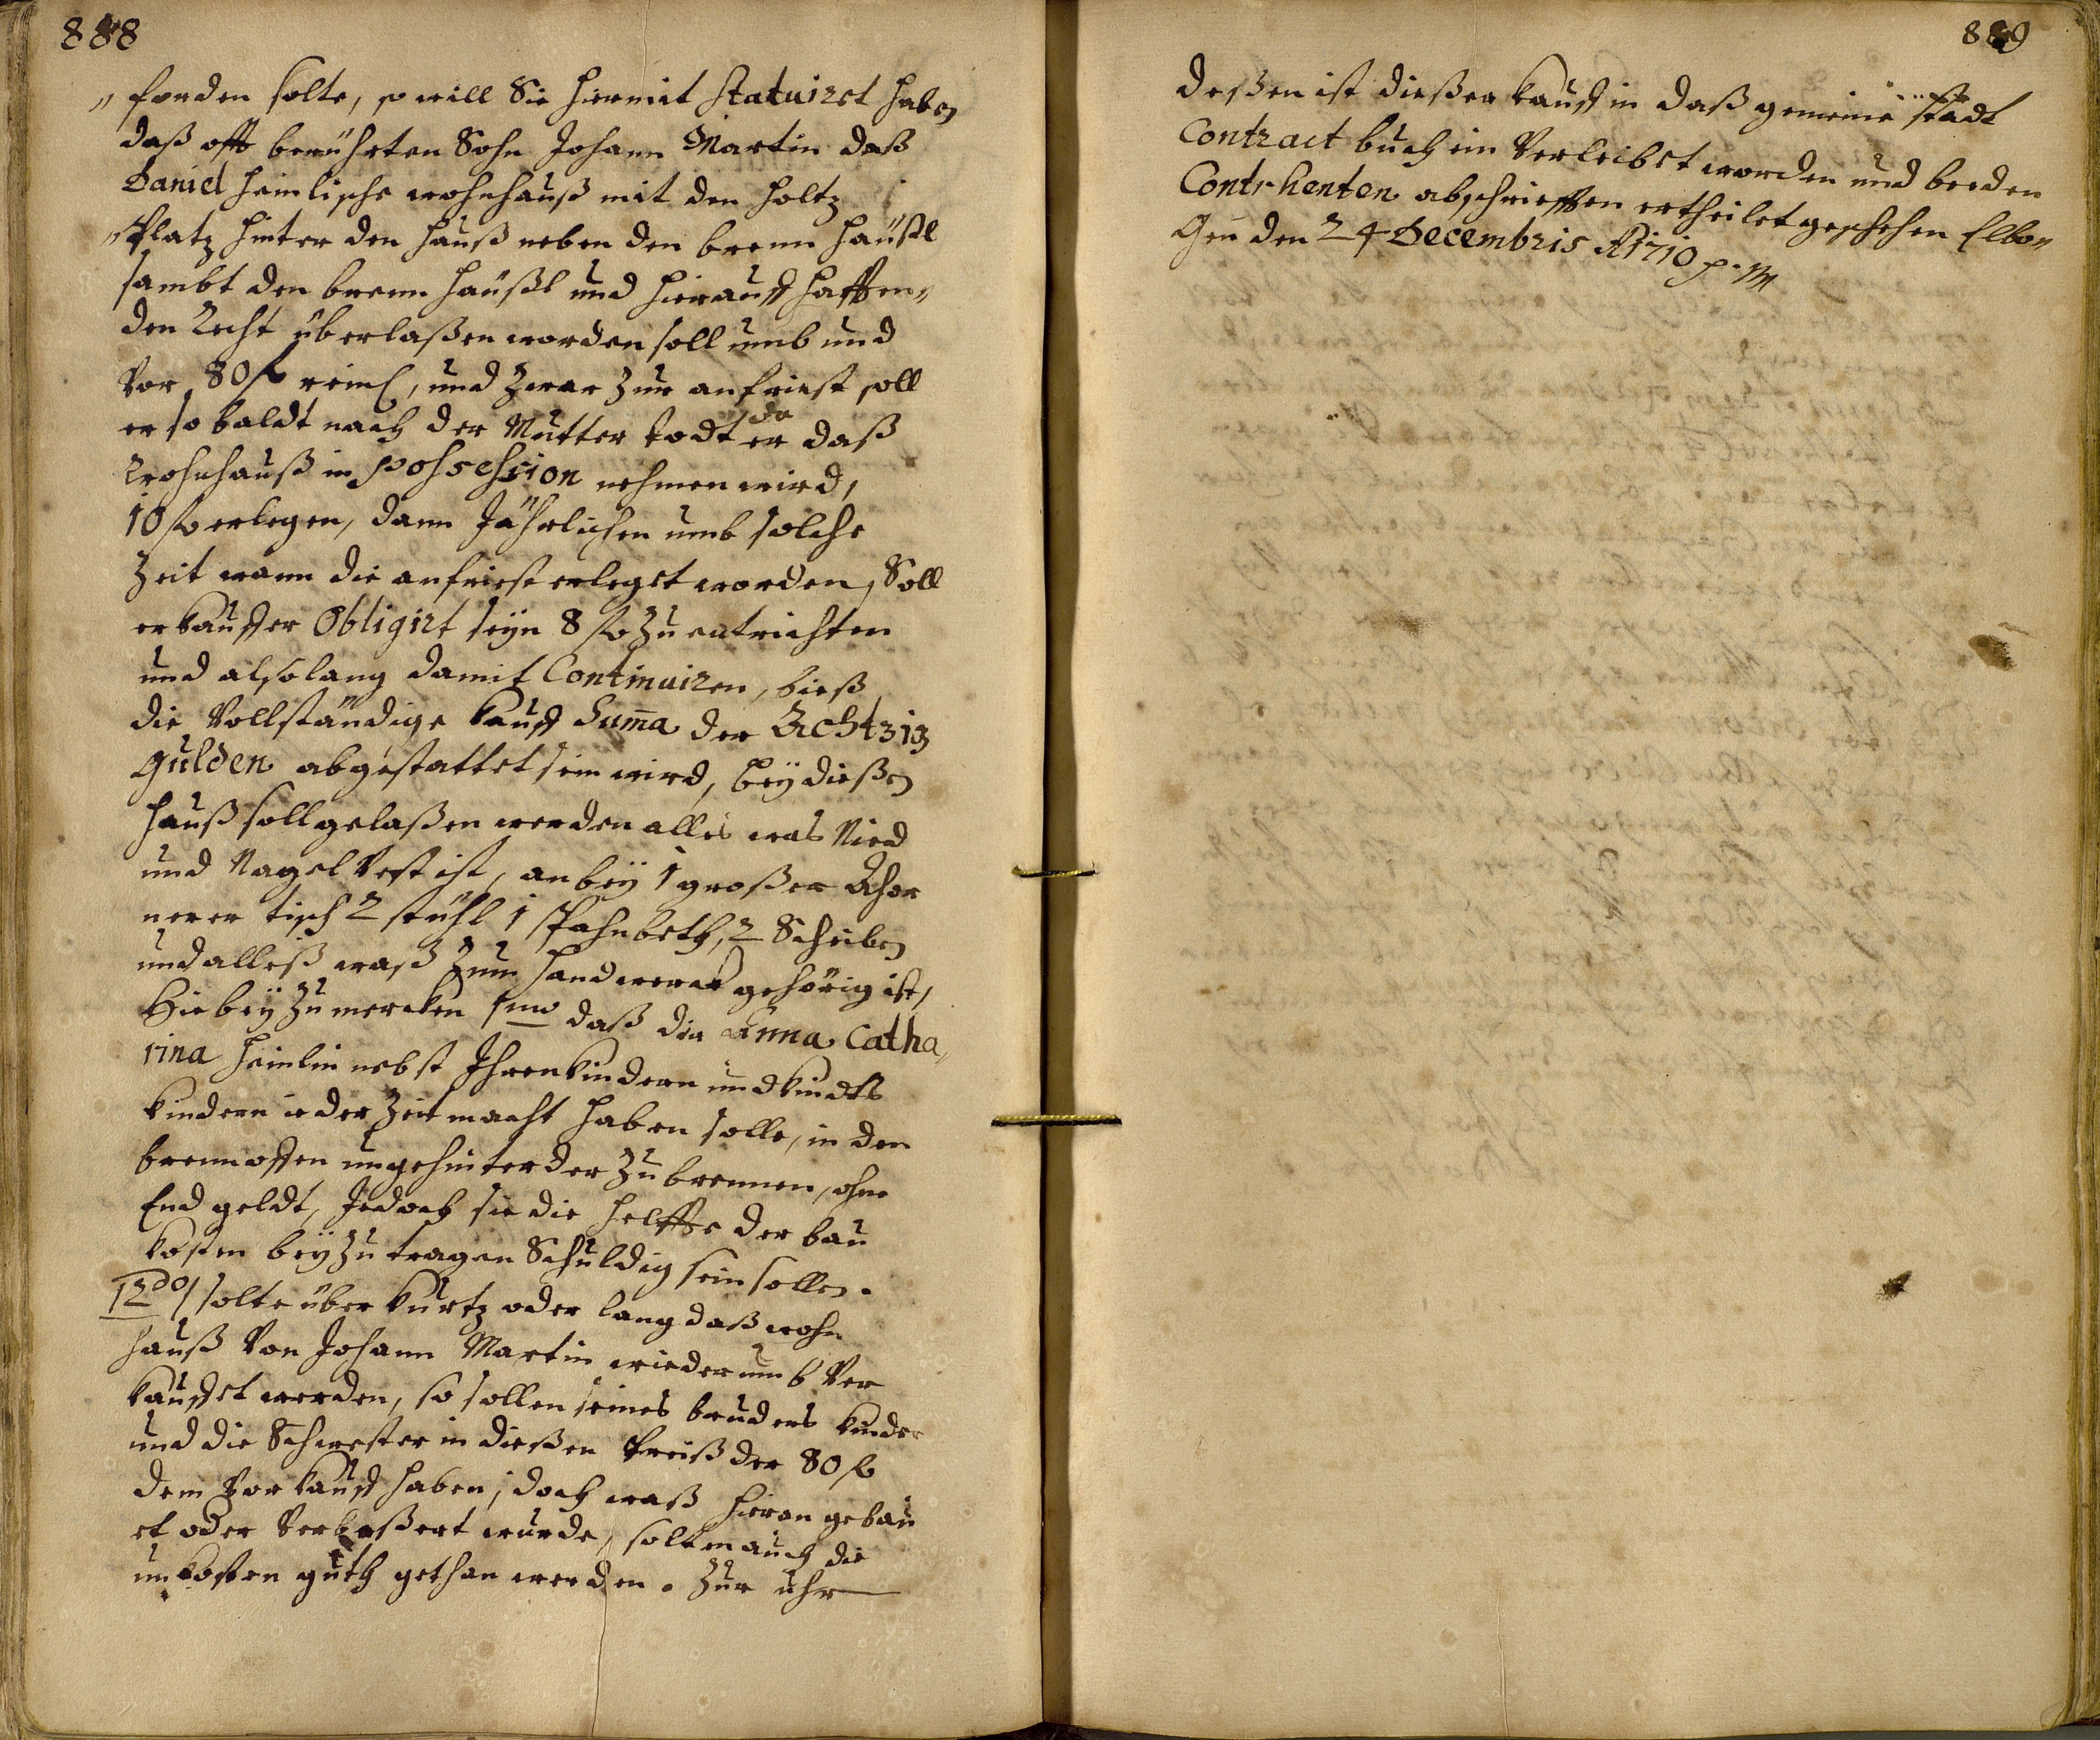 888
„fordern solte, so will Sie hiermit Statuiret haben
daß offt berührten Sohn Johann Martin daß
Daniel Heinlische wohnhauß mit den Holtz
„Platz hinter den Hauß neben den brenn Häußl
sambt den brenn Häußl und hierauff hafften„
den Recht überlaßen worden soll umb und
Vor 80 fl rein, und Zwar Zur anfriest soll
er so baldt nach der Mutter todt da er daß
Wohnhauß in possession nehmen wird,
10 fl erlegen, dann Jährlichen umb solche
Zeit wann die anfriest erleget worden, Soll
er kauffer Obligirt seÿn 8 fl Zu entrichten
und also lang damit Continuiren, bieß
die Vollständige kauff Summa der Achtzig
Gulden abgestattet sein wird, beÿ dießen
Hauß soll gelaßen werden alles was Nied
und Nagel Vest ist, an beÿ 1 großer Ahor
nerer tisch 2 stühl 1 spahnbeth, 2 Scheiben
und alleß waß Zum Handwerck gehörig ist,
Hie beÿ Zu mercken 1mo daß die Anna Catha„
rina Heinlin nebst Ihren kindern und kindts
kindern ieder Zeit macht haben solle, in den
brennoffen ungehinterder Zu brennen, ohne
End geldt, Jedoch sie die helffte der bau
kosten beÿ Zu tragen Schuldig sein sollen.
2do solte über kurtz oder lang daß wohn
hauß Von Johann Martin wiederumb Ver
kauffet werden, so sollen seines bruders kinder
und die Schwester in dießen Preiß der 80 fl
dem Vorkauff haben, doch waß hieran gebau
et oder Verbeßert wurde, solten auch die
unkosten guth gethan werden. Zur uhr
889
deßen ist dießer kauff in daß gemeine stadt
Contract buch ein Verleibet worden und beeden
Contrhenten abschriefften ertheilet geschehen Elbo„
gen den 24 Decembris A 1710 p. m